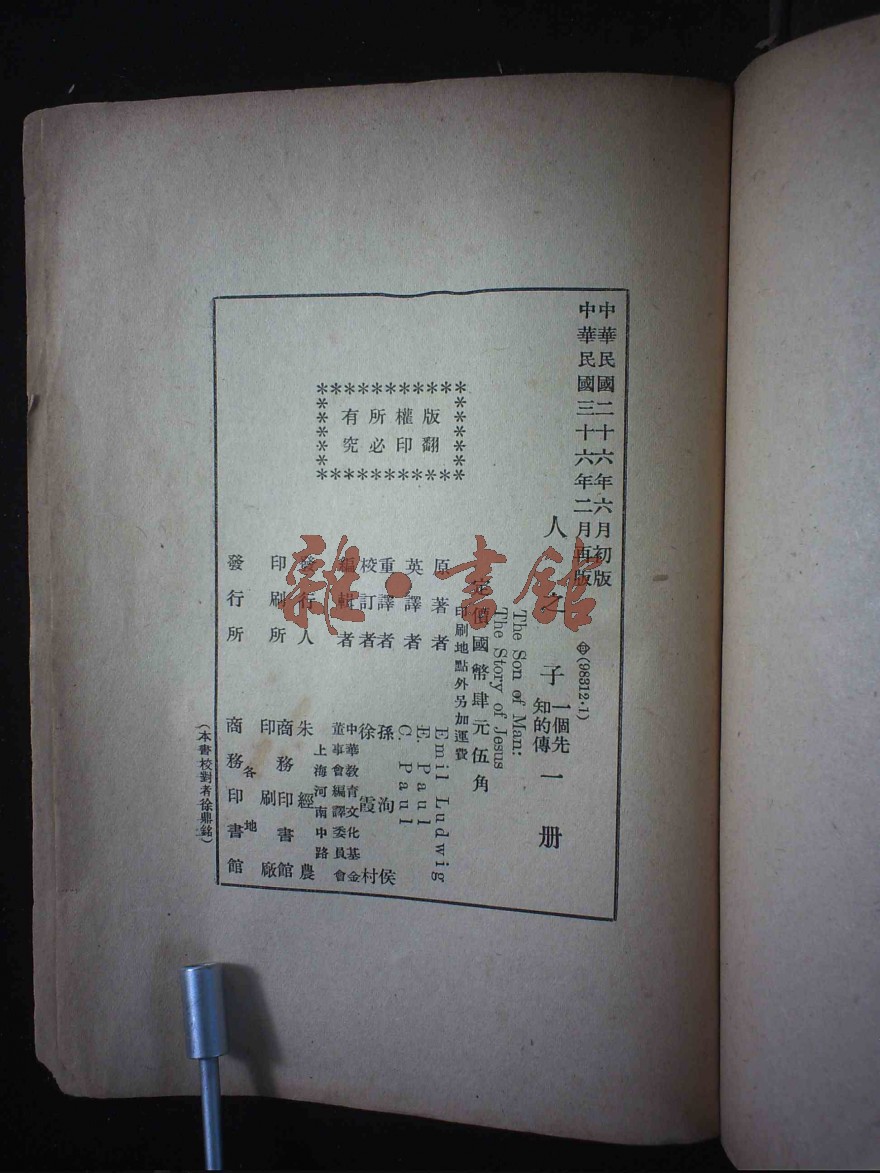 中華民國二十六年六月初版
中華民國三十六年二月再版
㊥(98312·1)
人之子 一個先知的傳 一册
The Son of Man:
The Story of Jesus
定價國幣肆元伍角
印刷地點外另加運費
版權所有
翻印必究
原著者 Emil Ludwig
英譯者 E. Paul
C. Paul
重譯者 孫洵侯
校訂者 徐霞村
編輯者 中華教育文化基金董事會編譯委員會
發行人 朱經農
上海河南中路
印刷所 商務印書館印刷廠
發行所 各地 商務印書館
(本書校對者徐鼎銘)
雜·書館